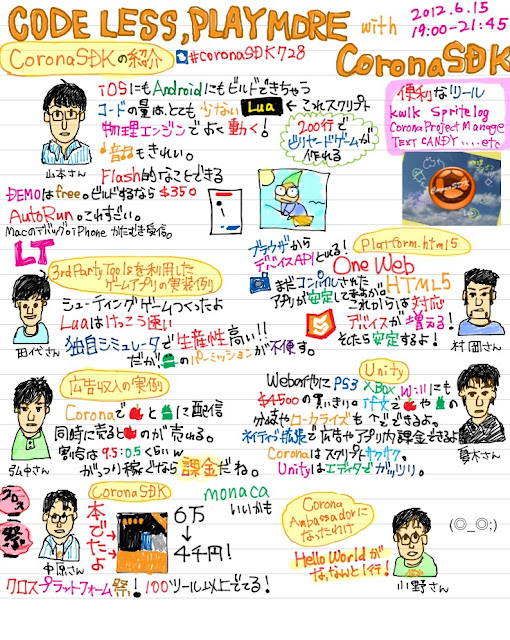 CODE LESS, PLAY MORE with CoronaSDK
2012.6.15
19:00-21:45
CoronaSDKの紹介
#coronaSDK728
iOSにもAndroidにもビルドできちゃう
コードの量は、とても少ない Lua ← これスクリプト
物理エンジンでよく動く!
200行で
ビリヤードゲームが
作れる
音もきれい。
Flash的なこともできる
山本さん
DEMOはfree。ビルドするなら$350
AutoRun。これすごい。
MacのデバッグでiPhoneがたびき受信。
便利なツール
kwik Spritelog
CoronaProject Manage
TEXT CANDY....etc
CoronaSDK
LT
3rd Party Toolsを利用した
ゲームアプリの実装例
シューティングゲームつくったよ
Luaはけっこう速い
独自シミュレータで生産性高い!!
だがのパーミッションが不便す。
田代さん
Platform.html5
ブラウザから
デバイスAPIとれる!
One Web
まだコンパイルされた
アプリが安定してますが
HTML5
これからは対応
デバイスが増える!
そしたら安定するよ!
村岡さん
広告収入の実例
Coronaでとに配信
同時に売るとのが売れる。
割合は9.5:0.5くらいw
がっつり稼ぐなら課金だね。
Unity
Webの他にPS3 XBox Wiiにも
$4500の買いきり。
ローカライズも
ネイティブ拡張で広告やアプリ内課金できるよ
Coronaはスクリプトサクサク。
Unityはエディタでガッツリ。
クロス祭
CoronaSDK
本でたよ
monaca
いいかも
6万
↓
4千円!
中原さん
クロスプラットフォーム祭! 100ツール以上でてる!
Corona
Ambassadorに
なったわけ
Hello Worldが
な、なんと1行!
小野さん
(◎_◎;)